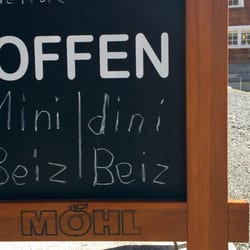 OFFEN
Mini / dini
Beiz | Beiz
MÖHL